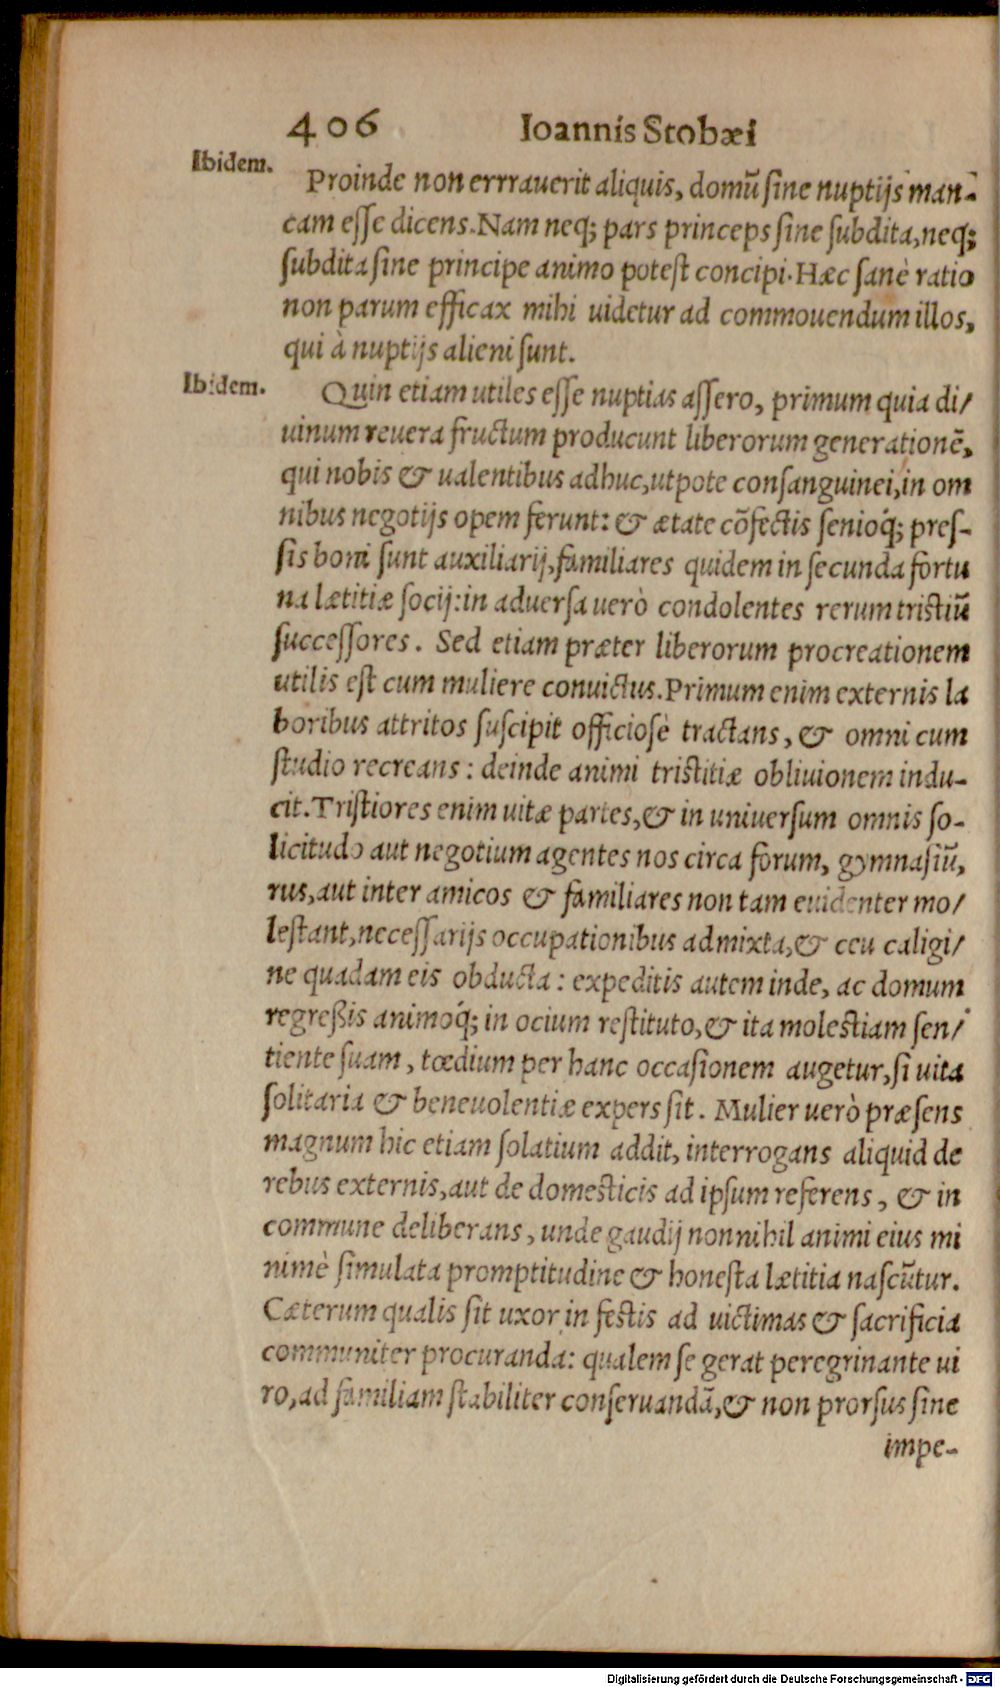 406 Ioannis Stobæi
Ibidem.
Proinde non errrauerit aliquis, domũ sine nuptijs man-
cam esse dicens. Nam neq; pars princeps sine subdita, neq;
subdita sine principe animo potest concipi. Hæc sanè ratio
non parum efficax mihi uidetur ad commouendum illos,
qui à nuptijs alieni sunt.
Ibidem.
Quin etiam utiles esse nuptias assero, primum quia di/
uinum reuera fructum producunt liberorum generationẽ,
qui nobis & ualentibus adhuc, utpote consanguinei, in om
nibus negotijs opem ferunt: & ætate cõfectis senioq́; pres-
sis boni sunt auxiliarij, familiares quidem in secunda fortu
na lætitiæ socij: in aduersa uerò condolentes rerum tristiũ
successores. Sed etiam præter liberorum procreationem
utilis est cum muliere conuictus. Primum enim externis la
boribus attritos suscipit officiosè tractans, & omni cum
studio recreans: deinde animi tristitiæ obliuionem indu-
cit. Tristiores enim uitæ partes, & in uniuersum omnis so-
licitudo aut negotium agentes nos circa forum, gymnasiũ,
rus, aut inter amicos & familiares non tam euidenter mo/
lestant, necessarijs occupationibus admixta, & ceu caligi/
ne quadam eis obducta: expeditis autem inde, ac domum
regreßis animoq́; in ocium restituto, & ita molestiam sen/
tiente suam, tœdium per hanc occasionem augetur, si uita
solitaria & beneuolentiæ expers sit. Mulier uerò præsens
magnum hic etiam solatium addit, interrogans aliquid de
rebus externis, aut de domesticis ad ipsum referens, & in
commune deliberans, unde gaudij nonnihil animi eius mi
nimè simulata promptitudine & honesta lætitia nascũtur.
Cæterum qualis sit uxor in festis ad uictimas & sacrificia
communiter procuranda: qualem se gerat peregrinante ui
ro, ad familiam stabiliter conseruandã, & non prorsus sine
impe-
Digitalisierung gefördert durch die Deutsche Forschungsgemeinschaft - DFG